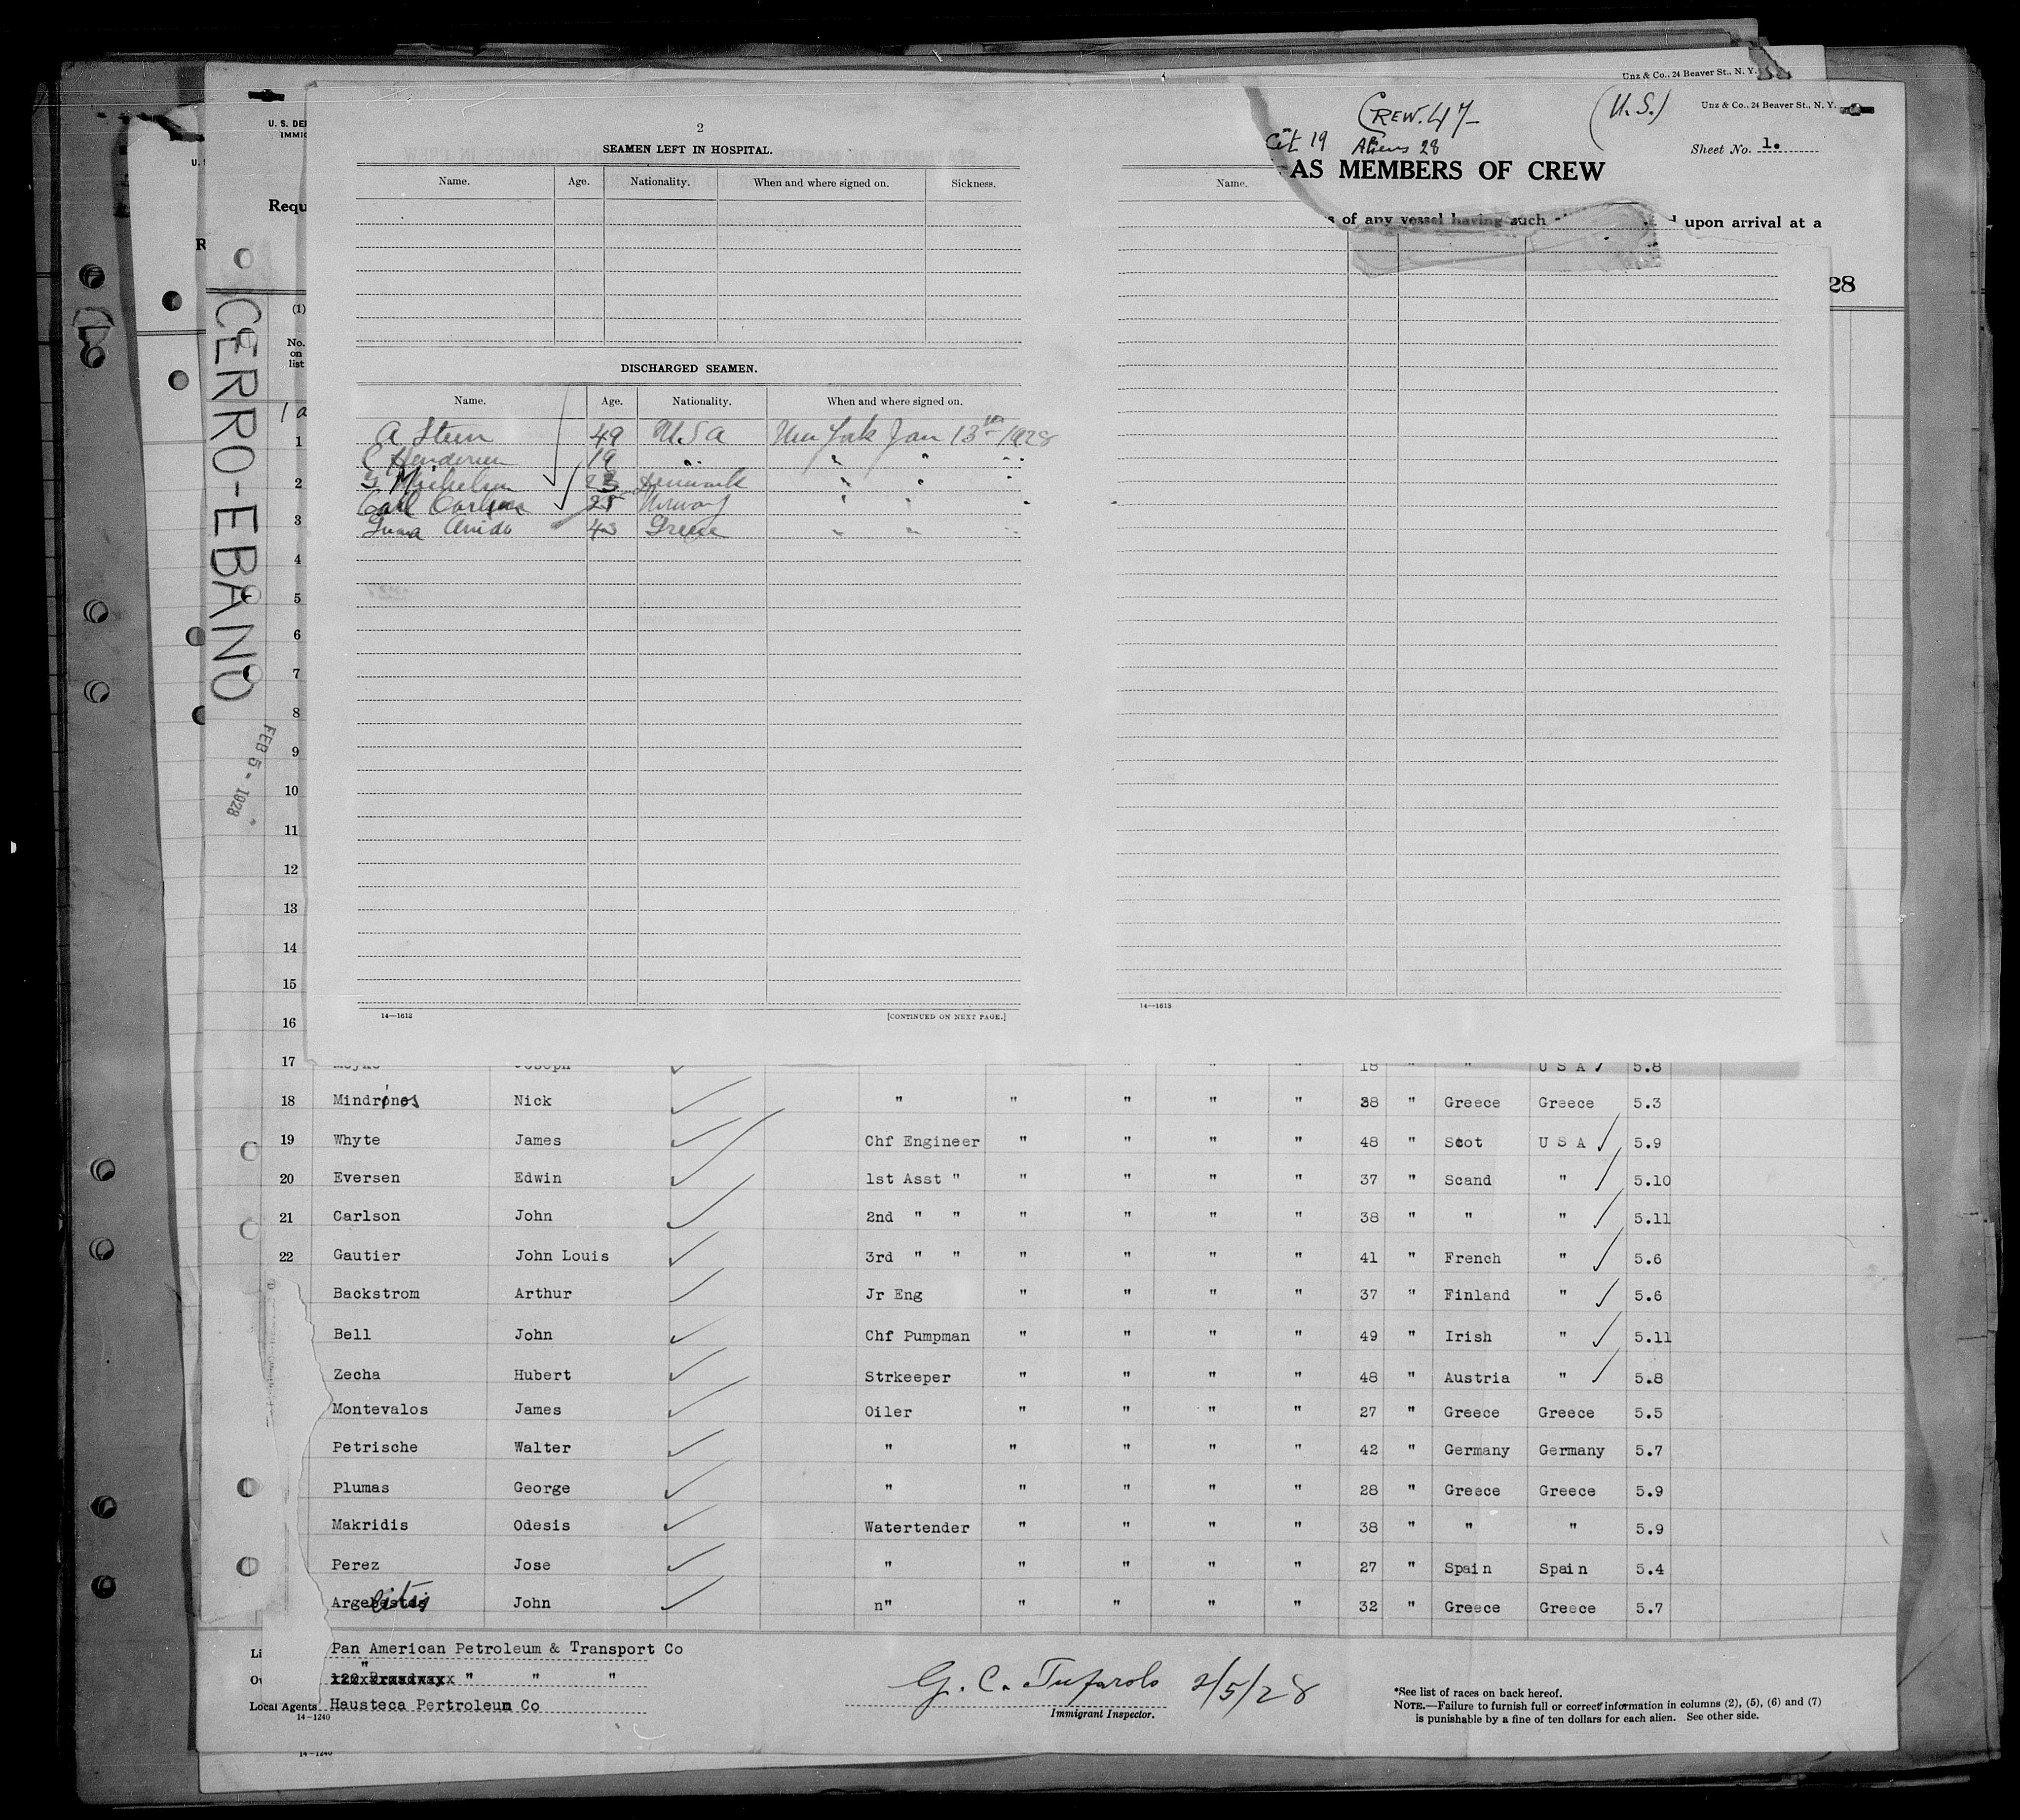 Unz & Co., 24 Beaver St., N. Y.
Unz & Co., 24 Beaver St., N. Y.
CREW. 47
(U.S.)
Cit 19 Aliens 28
Sheet No. 1.
AS MEMBERS OF CREW
of any vessel having such
upon arrival at a
28
U. S. DE
IMMIG
Requ
R
(1)
No. on list
CERRO-EBANO
FEB 5 - 1928
2
SEAMEN LEFT IN HOSPITAL.
Name. Age. Nationality. When and where signed on. Sickness.
Name.
DISCHARGED SEAMEN.
Name. Age. Nationality. When and where signed on.
A Stern 49 U.S.A New York Jan 13th 1928
19 " " " "
23 Denmark " " "
Carl Carlson 25 Norway " " "
43 Greece " " "
14—1613
[CONTINUED ON NEXT PAGE.]
14—1613
1
2
3
4
5
6
7
8
9
10
11
12
13
14
15
16
17 Joseph 18 " " U S A 5.8
18 Mindrinos Nick " " " " " 38 " Greece Greece 5.3
19 Whyte James Chf Engineer " " " " 48 " Scot U S A 5.9
20 Eversen Edwin 1st Asst " " " " " 37 " Scand " 5.10
21 Carlson John 2nd " " " " " " 38 " " " 5.11
22 Gautier John Louis 3rd " " " " " " 41 " French " 5.6
Backstrom Arthur Jr Eng " " " " 37 " Finland " 5.6
Bell John Chf Pumpman " " " " 49 " Irish " 5.11
Zecha Hubert Strkeeper " " " " 48 " Austria " 5.8
Montevalos James Oiler " " " " 27 " Greece Greece 5.5
Petrische Walter " " " " " 42 " Germany Germany 5.7
Plumas George " " " " " 28 " Greece Greece 5.9
Makridis Odesis Watertender " " " " 38 " " " 5.9
Perez Jose " " " " " 27 " Spain Spain 5.4
John n" " " " " 32 " Greece Greece 5.7
Li Pan American Petroleum & Transport Co
Ow " 120 Broadway " " "
Local Agents Hausteca Pertroleum Co
14-1240
14-1240
G. C. Tufarolo 2/5/28
Immigrant Inspector.
*See list of races on back hereof.
NOTE.—Failure to furnish full or correct information in columns (2), (5), (6) and (7)
is punishable by a fine of ten dollars for each alien. See other side.